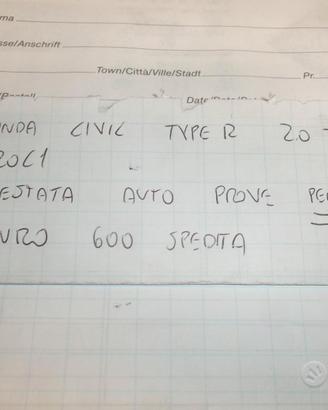 ma
sse/Anschrift
Town/Città/Ville/Stadt Pr.
Date
NDA CIVIC TYPE R 20
TESTATA AUTO PROVE PER
EURO 600 SPEDITA